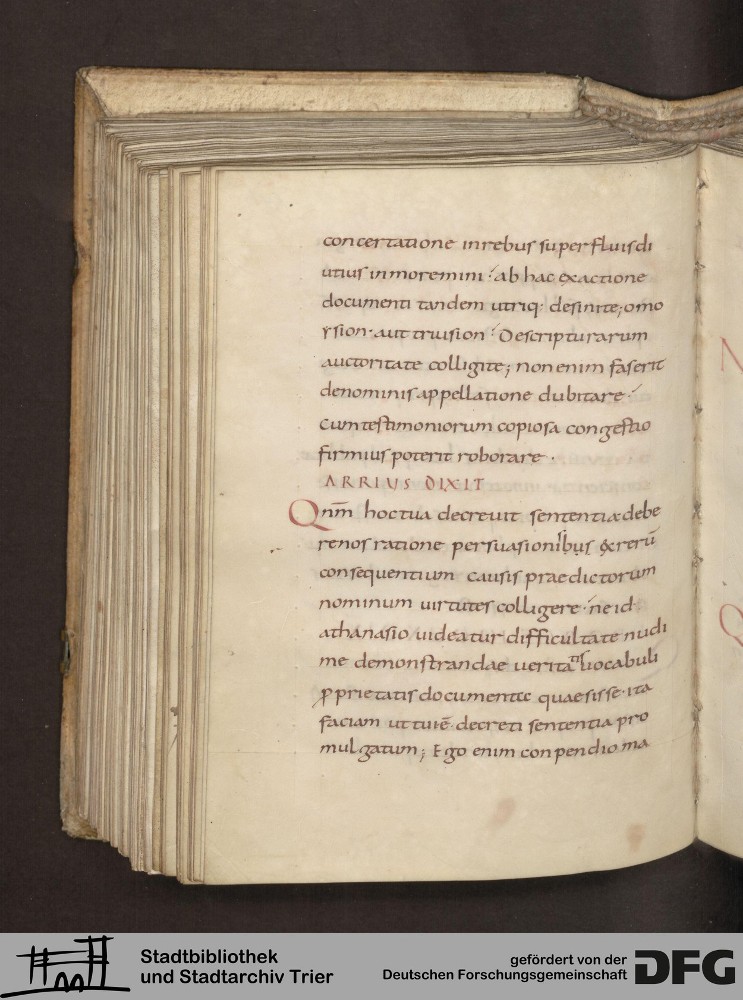 concertatione inrebus superfluis di
utius inmoremini· ab hac exactione
documenti tandem utriq: desinite; omo
ysion· aut triusion· De scripturarum
auctoritate colligite; non enim fas erit
denominis appellatione dubitare·
cum testimoniorum copiosa congestio
firmius poterit roborare·
ARRIUS DIXIT
Qnm̄ hoc tua decrevit sententia debe
re nos ratione persuasionibus & rerū
consequentium causis praedictorum
nominum uirtutes colligere· ne id
athanasio uideatur difficultate nudi
me demonstrandae ueritatis uocabuli
ꝓprietatis documenta quaesisse· ita
faciam ut tuiē decreti sententia pro
mulgatum; Ego enim conpendio ma
Stadtbibliothek
und Stadtarchiv Trier
gefördert von der
Deutschen Forschungsgemeinschaft
DFG